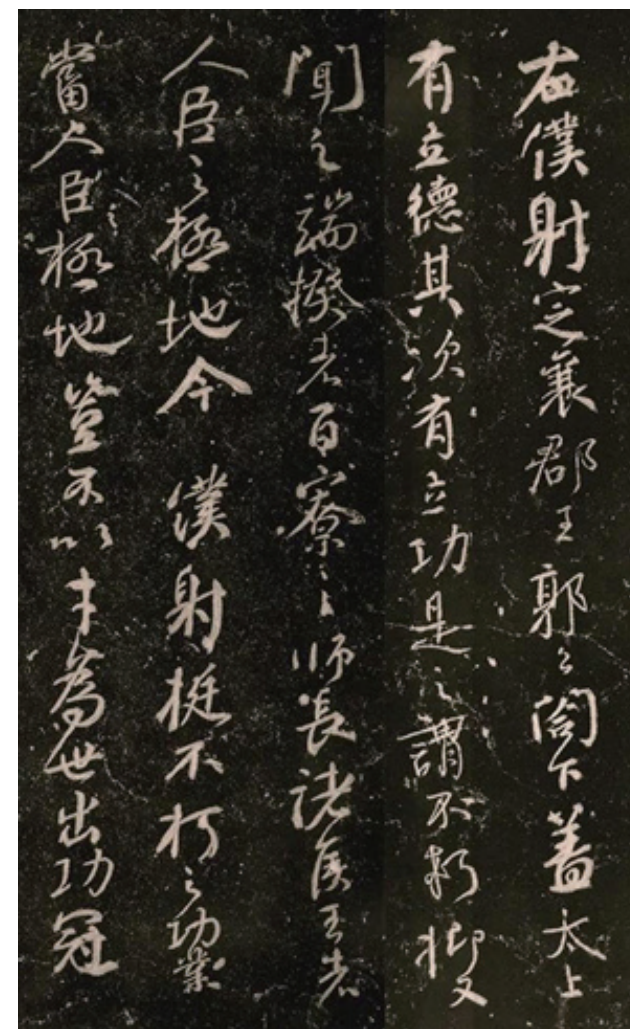 右僕射定襄郡王郭公閤下蓋太上
有立德其次有立功是之謂不朽抑又
聞之端揆者百寮之師長諸侯王者
人臣之極地今 僕射挺不朽之功業
當人臣之極地豈不以才為世出功冠